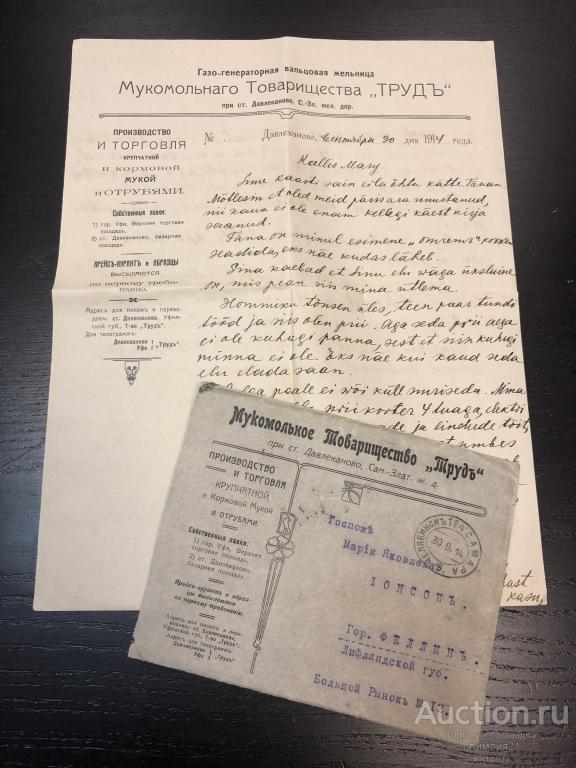 Газо-генераторная вальцовая мельница
Мукомольнаго Товарищества „ТРУДЪ“
при ст. Давлеканово, С.-Зл. жел. дор.
ПРОИЗВОДСТВО
И ТОРГОВЛЯ
КРУПЧАТНОЙ
И КОРМОВОЙ
МУКОЙ
И ОТРУБЯМИ.
Собственныя лавки:
1) гор. Уфа, Верхняя торговая
площадь,
2) ст. Давлеканово, базарная
площадь.
ПРЕЙСЪ-КУРАНТЪ и ОБРАЗЦЫ
ВЫСЫЛАЮТСЯ
по первому требо-
ванію.
Адресъ для писемъ и перево-
довъ: ст. Давлеканово, Уфим-
ской губ., Т-во „Трудъ“.
Для телеграммъ:
Давлеканово
Уфа
Трудъ
№ Давлеканово, Сентября 30 дня 1914 года.
Kallis Mary.
Sinu kaarti sain eila õhtu kätte. Tänan.
Mõtlesin et oled meid päris ära unustanud,
nii kaua ei ole enam kellegi käest kirja
saanud.
Täna on minul esimene
seadida, eks näe kudas läheb.
Sina kaebad et Sinu elu wäga üksluine
on, mis pean siis mina ütlema.
Hommiku tõusen üles, teen paar tundi
tööd ja siis olen prii. Aga seda prii aega
ei ole kuhugi panna, sest et siin kuhugi
minna ei ole. Eks näe kui kaua seda
elu elada saan.
peale ei wõi küll nuriseda. Nima
prii korter 4 tuaga, elektri
ja lindude
et umbes
Мукомольное Товарищество „Трудъ“
при ст. Давлеканово, Сам.-Злат. ж. д.
ПРОИЗВОДСТВО
И ТОРГОВЛЯ
КРУПЧАТНОЙ
и Кормовой Мукой
И ОТРУБЯМИ.
Собственныя лавки:
1) гор. Уфа, Верхняя
торговая площадь,
2) ст. Давлеканово,
базарная площадь.
Прейсъ-куранты и образ-
цы высылаются
по первому требованію.
Адресъ для писемъ и пере-
водовъ: ст. Давлеканово,
Уфимской губ., Т-во „Трудъ“
Адресъ для телеграммъ:
Давлеканово
Уфа
Трудъ
ЧЕЛЯБИНСКЪ 124 САМАРА
30 9 14
Госпожѣ
Маріи Яковлевнѣ
ІОНСОНЪ.
Гор. ФЕЛЛИНЪ.
Лифляндской губ.
Большой Рынокъ № 13.
Auction.ru
торговая площадка
олимпия21
auction.ru